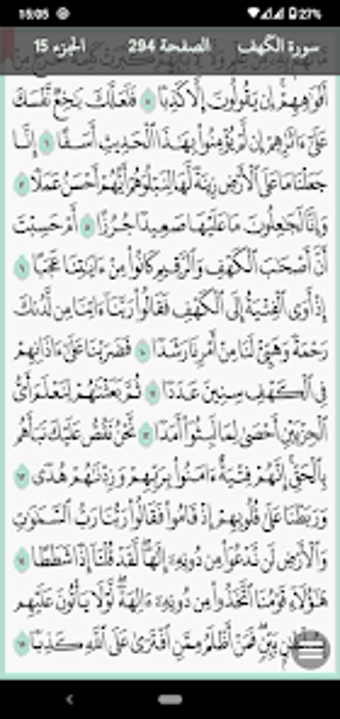 15:05 27%
سورة الكهف الصفحة 294 الجزء 15
أَفْوَٰهِهِمْ إِن يَقُولُونَ إِلَّا كَذِبًا ٥ فَلَعَلَّكَ بَٰخِعٌ نَّفْسَكَ
عَلَىٰٓ ءَاثَٰرِهِمْ إِن لَّمْ يُؤْمِنُوا۟ بِهَٰذَا ٱلْحَدِيثِ أَسَفًا ٦ إِنَّا
جَعَلْنَا مَا عَلَى ٱلْأَرْضِ زِينَةً لَّهَا لِنَبْلُوَهُمْ أَيُّهُمْ أَحْسَنُ عَمَلًا ٧
وَإِنَّا لَجَٰعِلُونَ مَا عَلَيْهَا صَعِيدًا جُرُزًا ٨ أَمْ حَسِبْتَ
أَنَّ أَصْحَٰبَ ٱلْكَهْفِ وَٱلرَّقِيمِ كَانُوا۟ مِنْ ءَايَٰتِنَا عَجَبًا ٩
إِذْ أَوَى ٱلْفِتْيَةُ إِلَى ٱلْكَهْفِ فَقَالُوا۟ رَبَّنَآ ءَاتِنَا مِن لَّدُنكَ
رَحْمَةً وَهَيِّئْ لَنَا مِنْ أَمْرِنَا رَشَدًا ١٠ فَضَرَبْنَا عَلَىٰٓ ءَاذَانِهِمْ
فِى ٱلْكَهْفِ سِنِينَ عَدَدًا ١١ ثُمَّ بَعَثْنَٰهُمْ لِنَعْلَمَ أَىُّ
ٱلْحِزْبَيْنِ أَحْصَىٰ لِمَا لَبِثُوٓا۟ أَمَدًا ١٢ نَّحْنُ نَقُصُّ عَلَيْكَ نَبَأَهُم
بِٱلْحَقِّ إِنَّهُمْ فِتْيَةٌ ءَامَنُوا۟ بِرَبِّهِمْ وَزِدْنَٰهُمْ هُدًى ١٣
وَرَبَطْنَا عَلَىٰ قُلُوبِهِمْ إِذْ قَامُوا۟ فَقَالُوا۟ رَبُّنَا رَبُّ ٱلسَّمَٰوَٰتِ
وَٱلْأَرْضِ لَن نَّدْعُوَا۟ مِن دُونِهِۦٓ إِلَٰهًا لَّقَدْ قُلْنَآ إِذًا شَطَطًا ١٤
هَٰٓؤُلَآءِ قَوْمُنَا ٱتَّخَذُوا۟ مِن دُونِهِۦٓ ءَالِهَةً لَّوْلَا يَأْتُونَ عَلَيْهِم
بَيِّنٍ فَمَنْ أَظْلَمُ مِمَّنِ ٱفْتَرَىٰ عَلَى ٱللَّهِ كَذِبًا ١٥